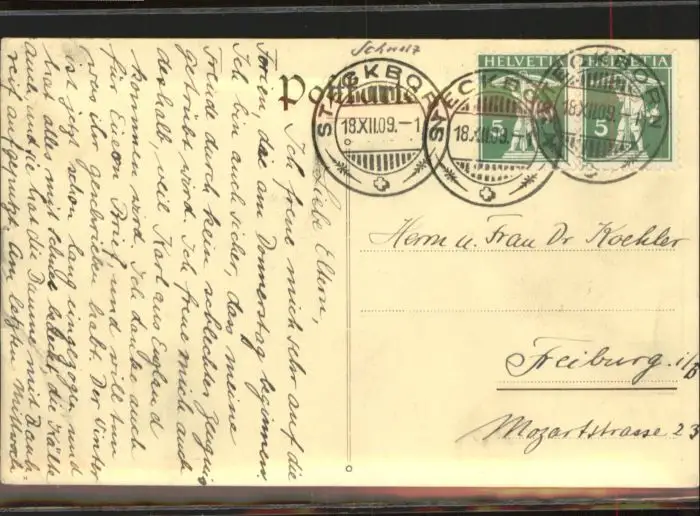 Schweiz
Postkarte
HELVETIA
HELVETIA
5
5
STECKBORN
18.XII.09.–1
STECKBORN
18.XII.09.
STECKBORN
18.XII.09.–1
Herrn u. Frau Dr Koehler
Freiburg i/B
Mozartstrasse 23
Liebe Eltern,
Ich freue mich sehr auf die
Ferien, die am Donnerstag beginnen
Ich bin auch sicher, dass meine
Freude durch kein schlechtes Zeugnis
getrübt wird. Ich freue mich auch
deshalb, weil Karl aus England
kommen wird. Ich danke auch
für Eueren Brief und will tun
was ihr geschrieben habt. Der Winter
ist jetzt schon lang eingezogen und
hat alles mit Schnee bedeckt die Kälte
auch, und sie hat die Bäume mit Rauh-
reif Am letzten Mittwoch